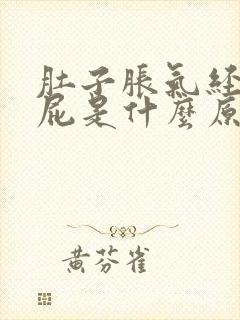 肚子脹氣經
屁是什麼原
黃芬雀